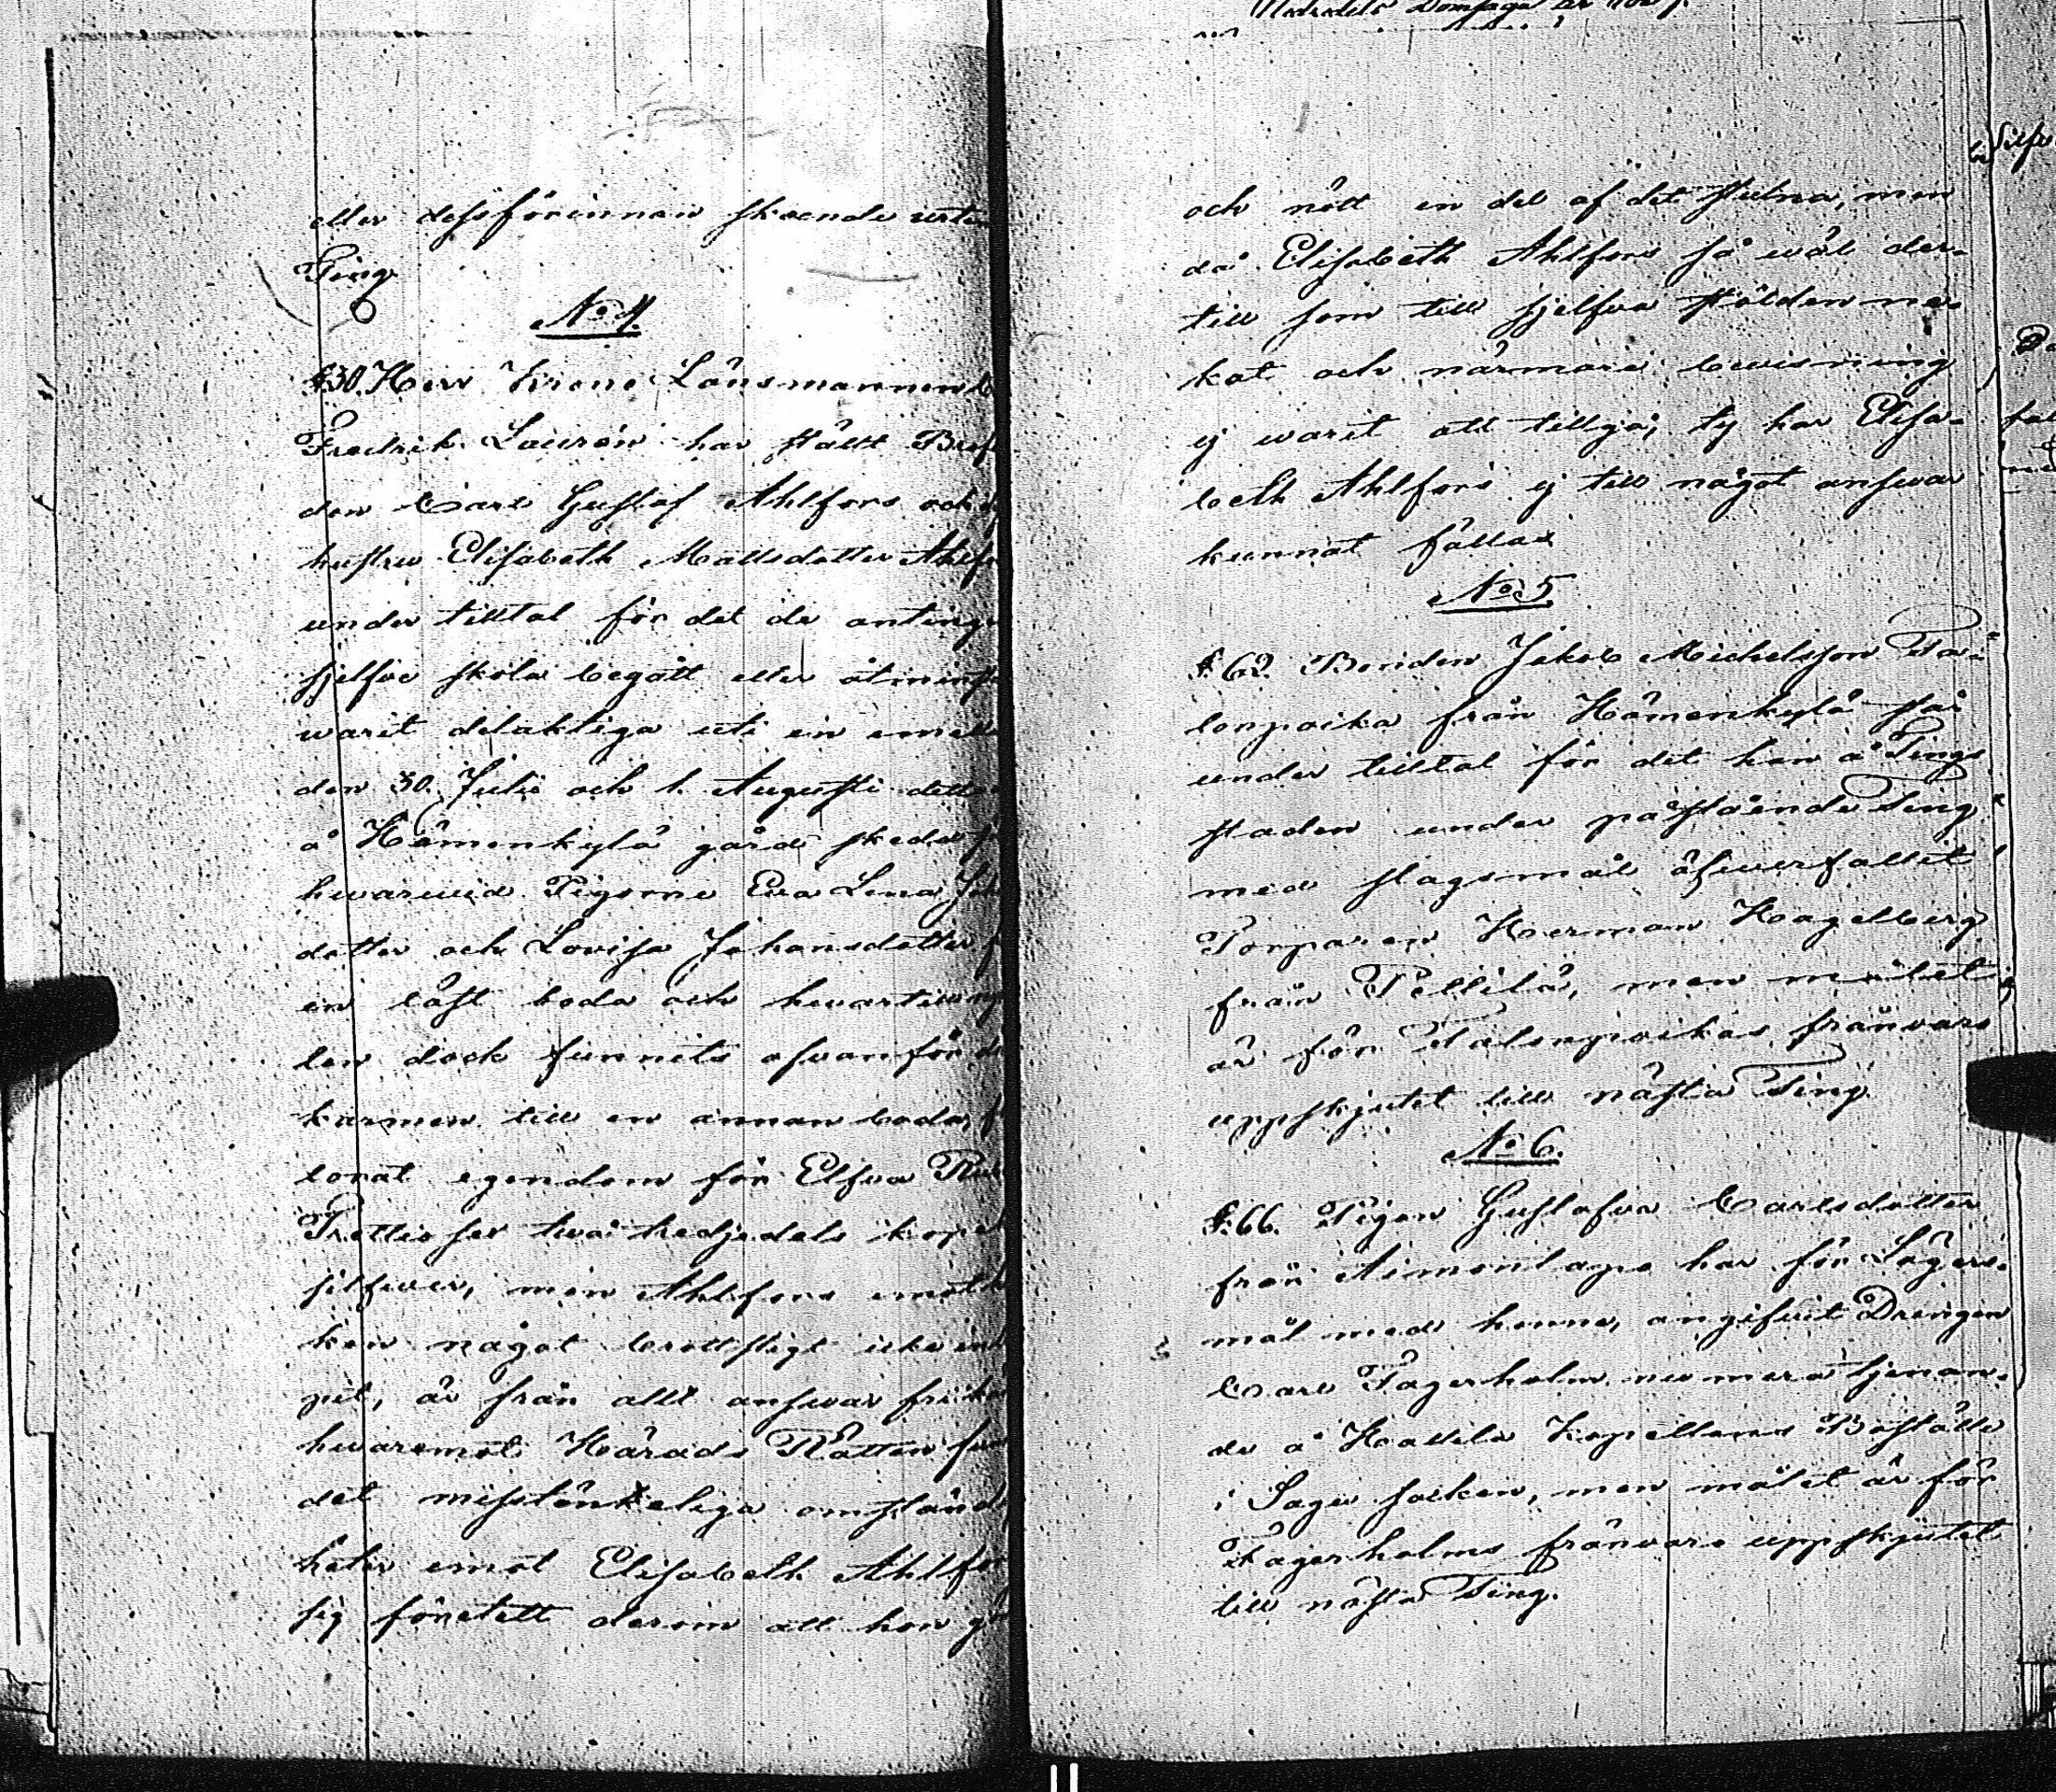 eller dessförinnan skeende urti
Ting
No 4.
§ 30. Herr Krono Länsmannen C
Fredrik Laurén har ställt Bref
den Carl Gustaf Ahlfors och d
hustru Elisabeth Mattsdotter Ahlfo
under tilltal för det de antinge
sjelfve skola begått eller åtminsto
warit delaktiga uti en emell
den 30. Julii och 1. Augusti detta
å Hämenkylä gård skedd
hwarwid Pigorne Eva Lena Joh
dotter och Lovisa Johansdotter f
en låst boda och hwartill ny
len dock funnits ofvanför d
karmen till en annan boda, f
lorat egendom för Elfva Rub
Trettio sex två tredjedels kope
silfver, men Ahlfors emot
ken något brottsligt icke in
pit, är från allt answar frik
hwaremot Härads Rätten fun
det misstänkeliga omständ
heter emot Elisabeth Ahlfor
sig företett derom att hon g
och nött en del af det stulna, men
då Elisabeth Ahlfors så wäl der-
till som till sjelfva stölden ne-
kat och närmare bewisning
ej warit att tillgå; ty har Elisa-
beth Ahlfors ej till något answar
kunnat fällas
No 5
§ 62. Bonden Jakob Michelsson Ta-
lonpoika från Hämenkylä står
under tilltal för det han å Tings
staden under påstående Ting
med slagsmål öfwerfallit
Torparen Herman Hagelberg
från Pellilä, men målet
är för Talonpoikas frånvaro
uppskjutet till nästa Ting.
No 6.
§ 66. Pigan Gustafva Carlsdotter
från har för Lägers-
mål med henne, angifvit Drengen
Carl Fagerholm numera tjenan-
de å Kapellans Boställe
i Sagu socken, men målet är för
Fagerholms frånvaro uppskjutet
till nästa Ting.